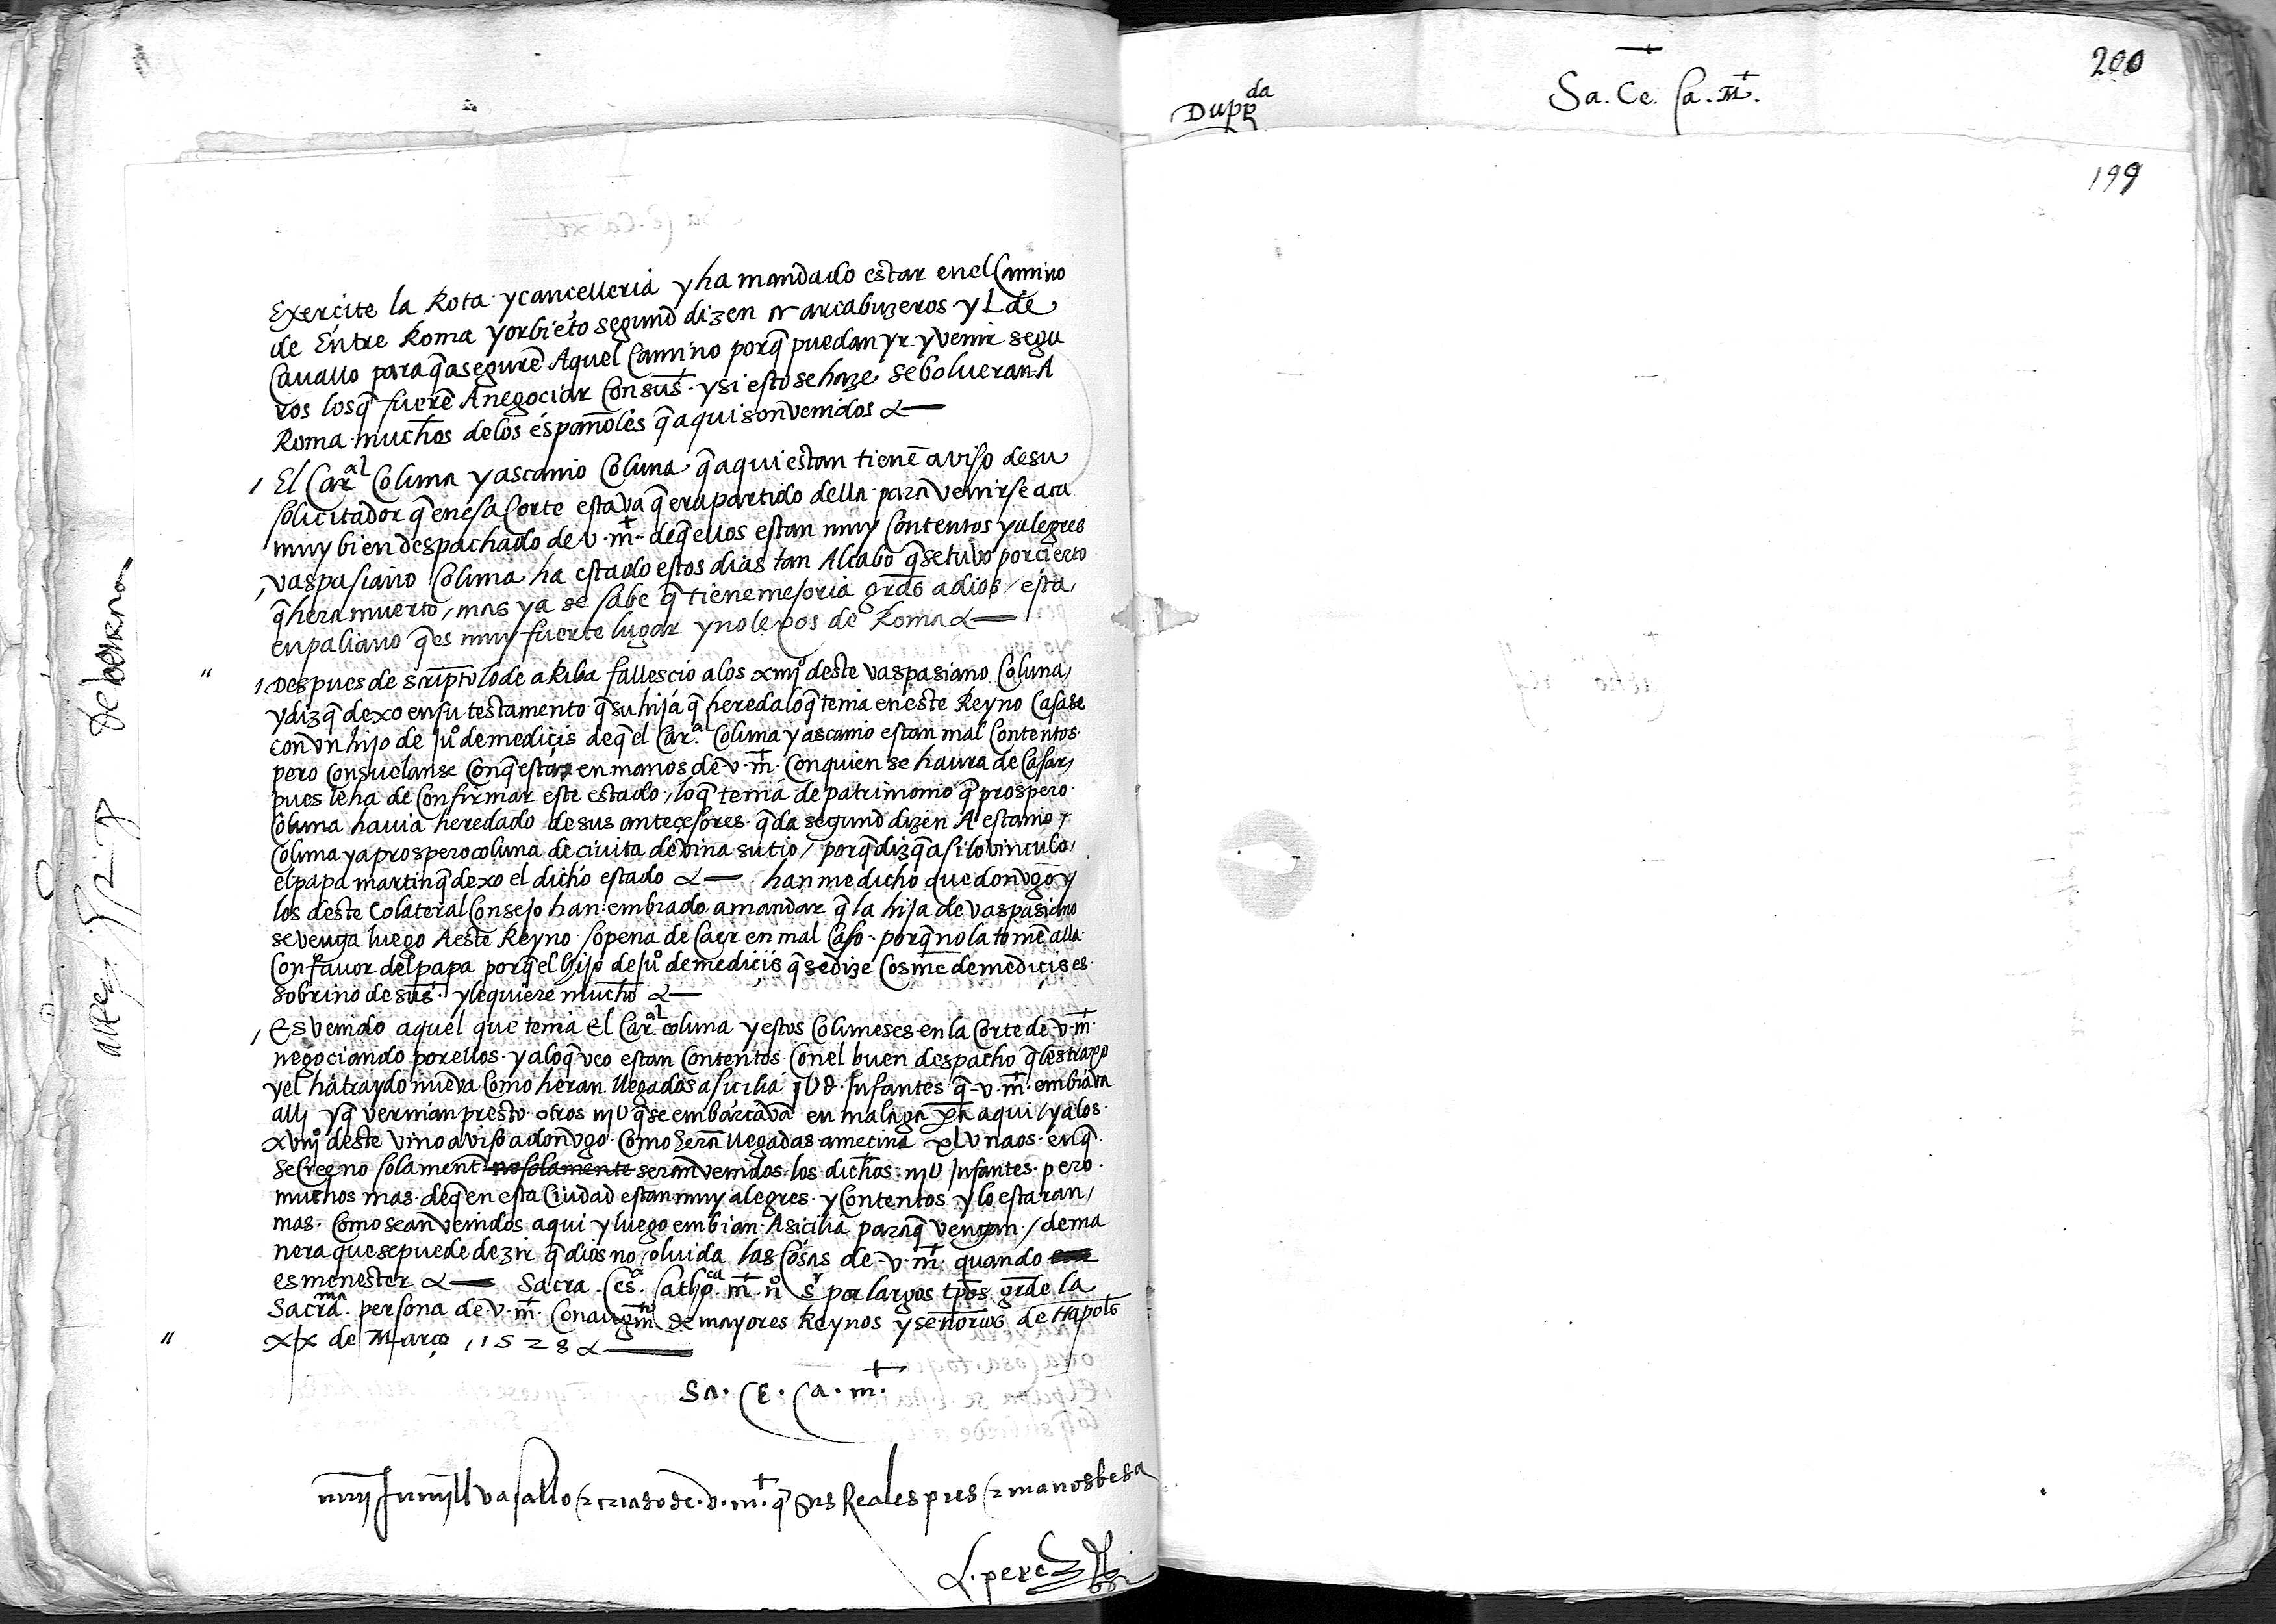 Exercite la Rota y cançelleria y ha mandado estar en el Camino
de Entre Roma y orbieto segund dizen arcabuzeros y L de
Cauallo para q̃ asegurẽ Aquel Camino porq̃ puedan yr y venir segu
ros los q̃ fuerẽ A negociar Con su sᵗ. y si esto se haze se bolueran A
Roma muchos de los españoles q̃ aqui son venidos
/ El Carᵃˡ Coluna y ascanio Coluna q̃ aqui estan tienẽ aviso de su
solicitador q̃ en esa Corte estava q̃ era partido della para venirse aca
muy bien despachado de v. mᵗ. de q̃ ellos estan muy Contentos y alegres
/ vaspasiano Coluna ha estado estos dias tan Al cabo q̃ se tuvo por cierto
q̃ hera muerto / mas ya se sabe q̃ tiene mejoria gr̃as a dios / esta
en paliano q̃ es muy fuerte lugar y no lexos de Roma
" / Despues de scripto lo de aRiba fallescio a los xiiijº deste vaspasiano Coluna
y diz q̃ dexo en su testamento q̃ su hija q̃ hereda lo q̃ tenia en este Reyno Casase
con vn hijo de Juº de medicis de q̃ el Carᵃˡ Coluna y ascanio estan mal Contentos.
pero Consuelanse Con q̃ esta en manos de v. mᵗ. Con quien se haura de Casar
pues le ha de Confirmar este estado / lo q̃ tenia de patrimonio q̃ prospero
Coluna hauia heredado de sus anteçesores q̃da segund dizen A
Coluna y a prospero coluna de ciuita de vina su tio / porq̃ diz q̃ asi lo vinculo
el papa martin q̃ dexo el dicho estado han me dicho que don vgo y
los deste Colateral Consejo han embiado a mandar q̃ la hija de vaspasiano
se venga luego A este Reyno so pena de Caer en mal Caso porq̃ no la tomẽ alla
Con fauor del papa porq̃ el hijo de Juº de medicis q̃ se dize Cosme de medicis es
sobrino de su sᵗ. y le quiere mucho
/ Es venido aquel que tenia el Carᵃˡ coluna y estos Coluneses en la Corte de v. mᵗ
negociando por ellos. y a lo q̃ veo estan Contentos Con el buen despacho q̃ les traxo
y el ha traydo nueva Como heran llegados a sicilia Infantes q̃ v. mᵗ. embiava
alli y q̃ vernian presto otros iijU q̃ se embarcavã en malaga pa aqui / y a los
xviijº deste vino aviso a don vgo Como herã llegadas a meçina xLv naos en q̃
se Cree no solamentᵉ no solamente seran venidos los dichos iijU Infantes pero
muchos mas de q̃ en esta Ciudad estan muy alegres y Contentos y lo estaran
mas Como sean venidos aqui y luego embian A sicilia para q̃ vengan / de ma
nera que se puede dezir q̃ dios no oluida las Cosas de v. mᵗ. quando
es menester Sacra. Cesᵃ. Cathᶜᵃ. mᵗ. nº sʳ por largos tp̃os gr̃de la
Sacrᵐᵃ. persona de v. mᵗ. Con augmᵗᵒ de mayores Reynos y señorios de Napoles
" xix de Março, 1528
Sa. Ce. Ca. mᵗ.
muy humyll vasallo & criado de v. mᵗ. q̃ sus Reales pies & manos besa
L. perez
Dupᵈᵃ
Sa. Ce. Ca. Mᵗ.
200
199